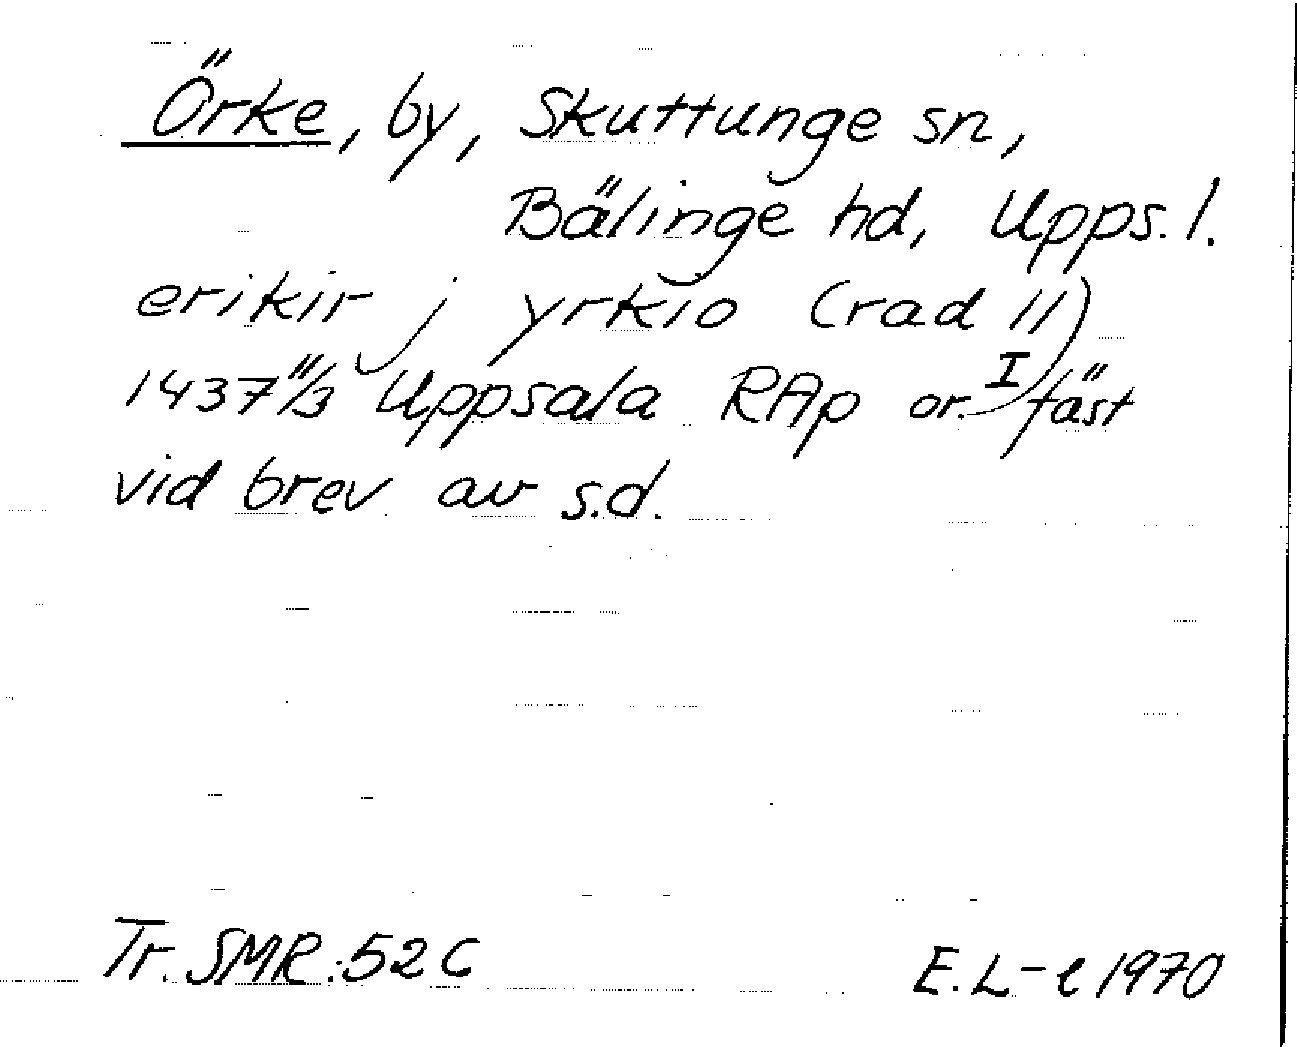 Örke, by, Skuttunge sn,
Bälinge hd, Upps. l.
erikir j yrkio (rad 11)
1437 11/3 Uppsala RAp or. I fäst
vid brev av s.d.
Tr. SMR:52 C
E. L-e 1970